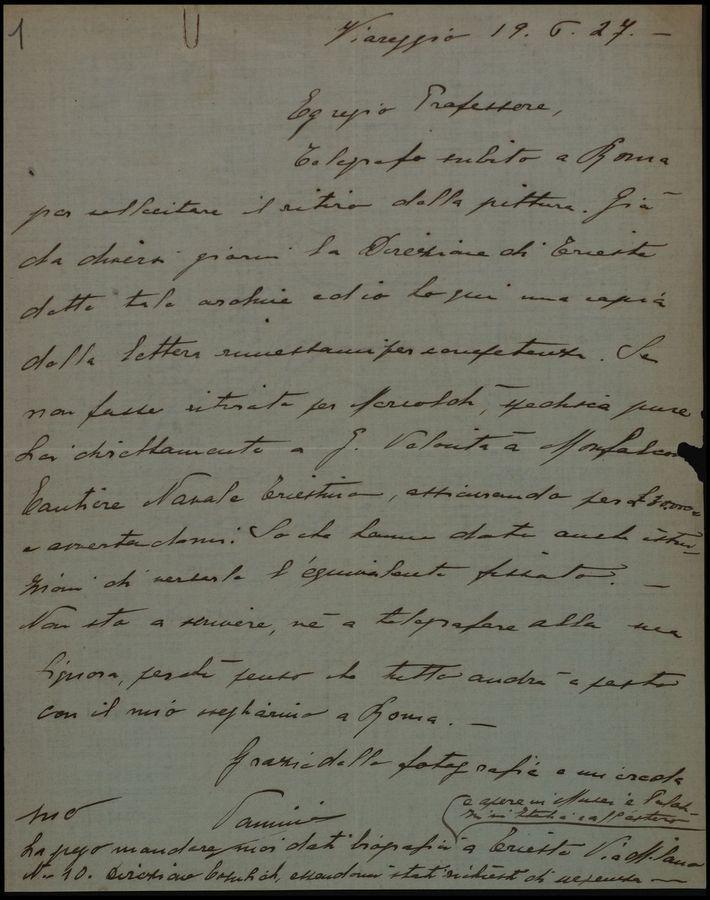 1
Viareggio 19. 6. 27. —
Egregio Professore,
Telegrafo subito a Roma
per sollecitare il ritiro della pittura. Già
da diversi giorni la Direzione di Trieste
dette tale ordine ed io ho qui una copia
della lettera rimessami per competenza. Se
non fosse ritirata per Mercoldì, spedisca pure
Lei direttamente a G. a Monfalcone
Cantiere Navale Triestino, assicurando per £
e avvertendomi. So che hanno dato anche istru-
zioni di versarle l'equivalente fissato. —
Non sto a scrivere, nè a telegrafare alla sua
Signora, perchè penso che tutto andrà a posto
con il mio a Roma. —
Grazie della fotografia e mi creda
suo
(e opere in Musei e
in Italia e all'estero
La prego mandare suoi dati biografici a Trieste Via Milano
No 10. Direzione Cosulich, essendomi stati richiesti di urgenza —